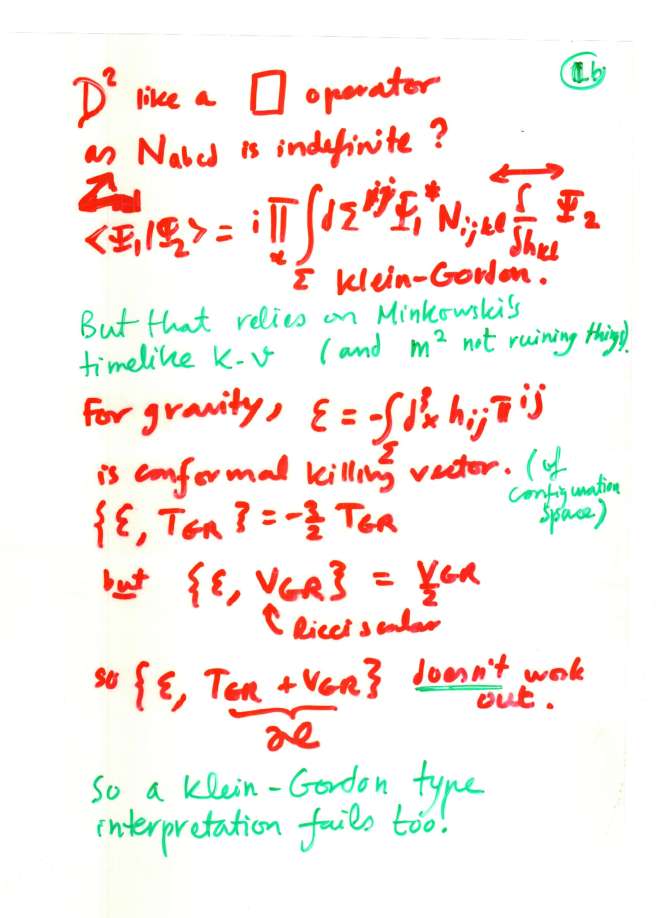 1b
D² like a □ operator
as Nabcd is indefinite?
<Ψ₁|Ψ₂> = i ∏ₓ ∫_Σ dΣ^{ij} Ψ₁* N_{ijkl} ↔δ/δh_{kl} Ψ₂
Klein-Gordon.
But that relies on Minkowski's
timelike K-v (and m² not ruining things).
For gravity, ε = -∫_Σ d³x h_{ij} π^{ij}
is conformal killing vector. (of
configuration
space)
{ε, T_GR} = -3/2 T_GR
but {ε, V_GR} = V_GR/2
↑ Ricci scalar
so {ε, T_GR + V_GR} doesn't work
out.
ℋ
So a Klein-Gordon type
interpretation fails too!